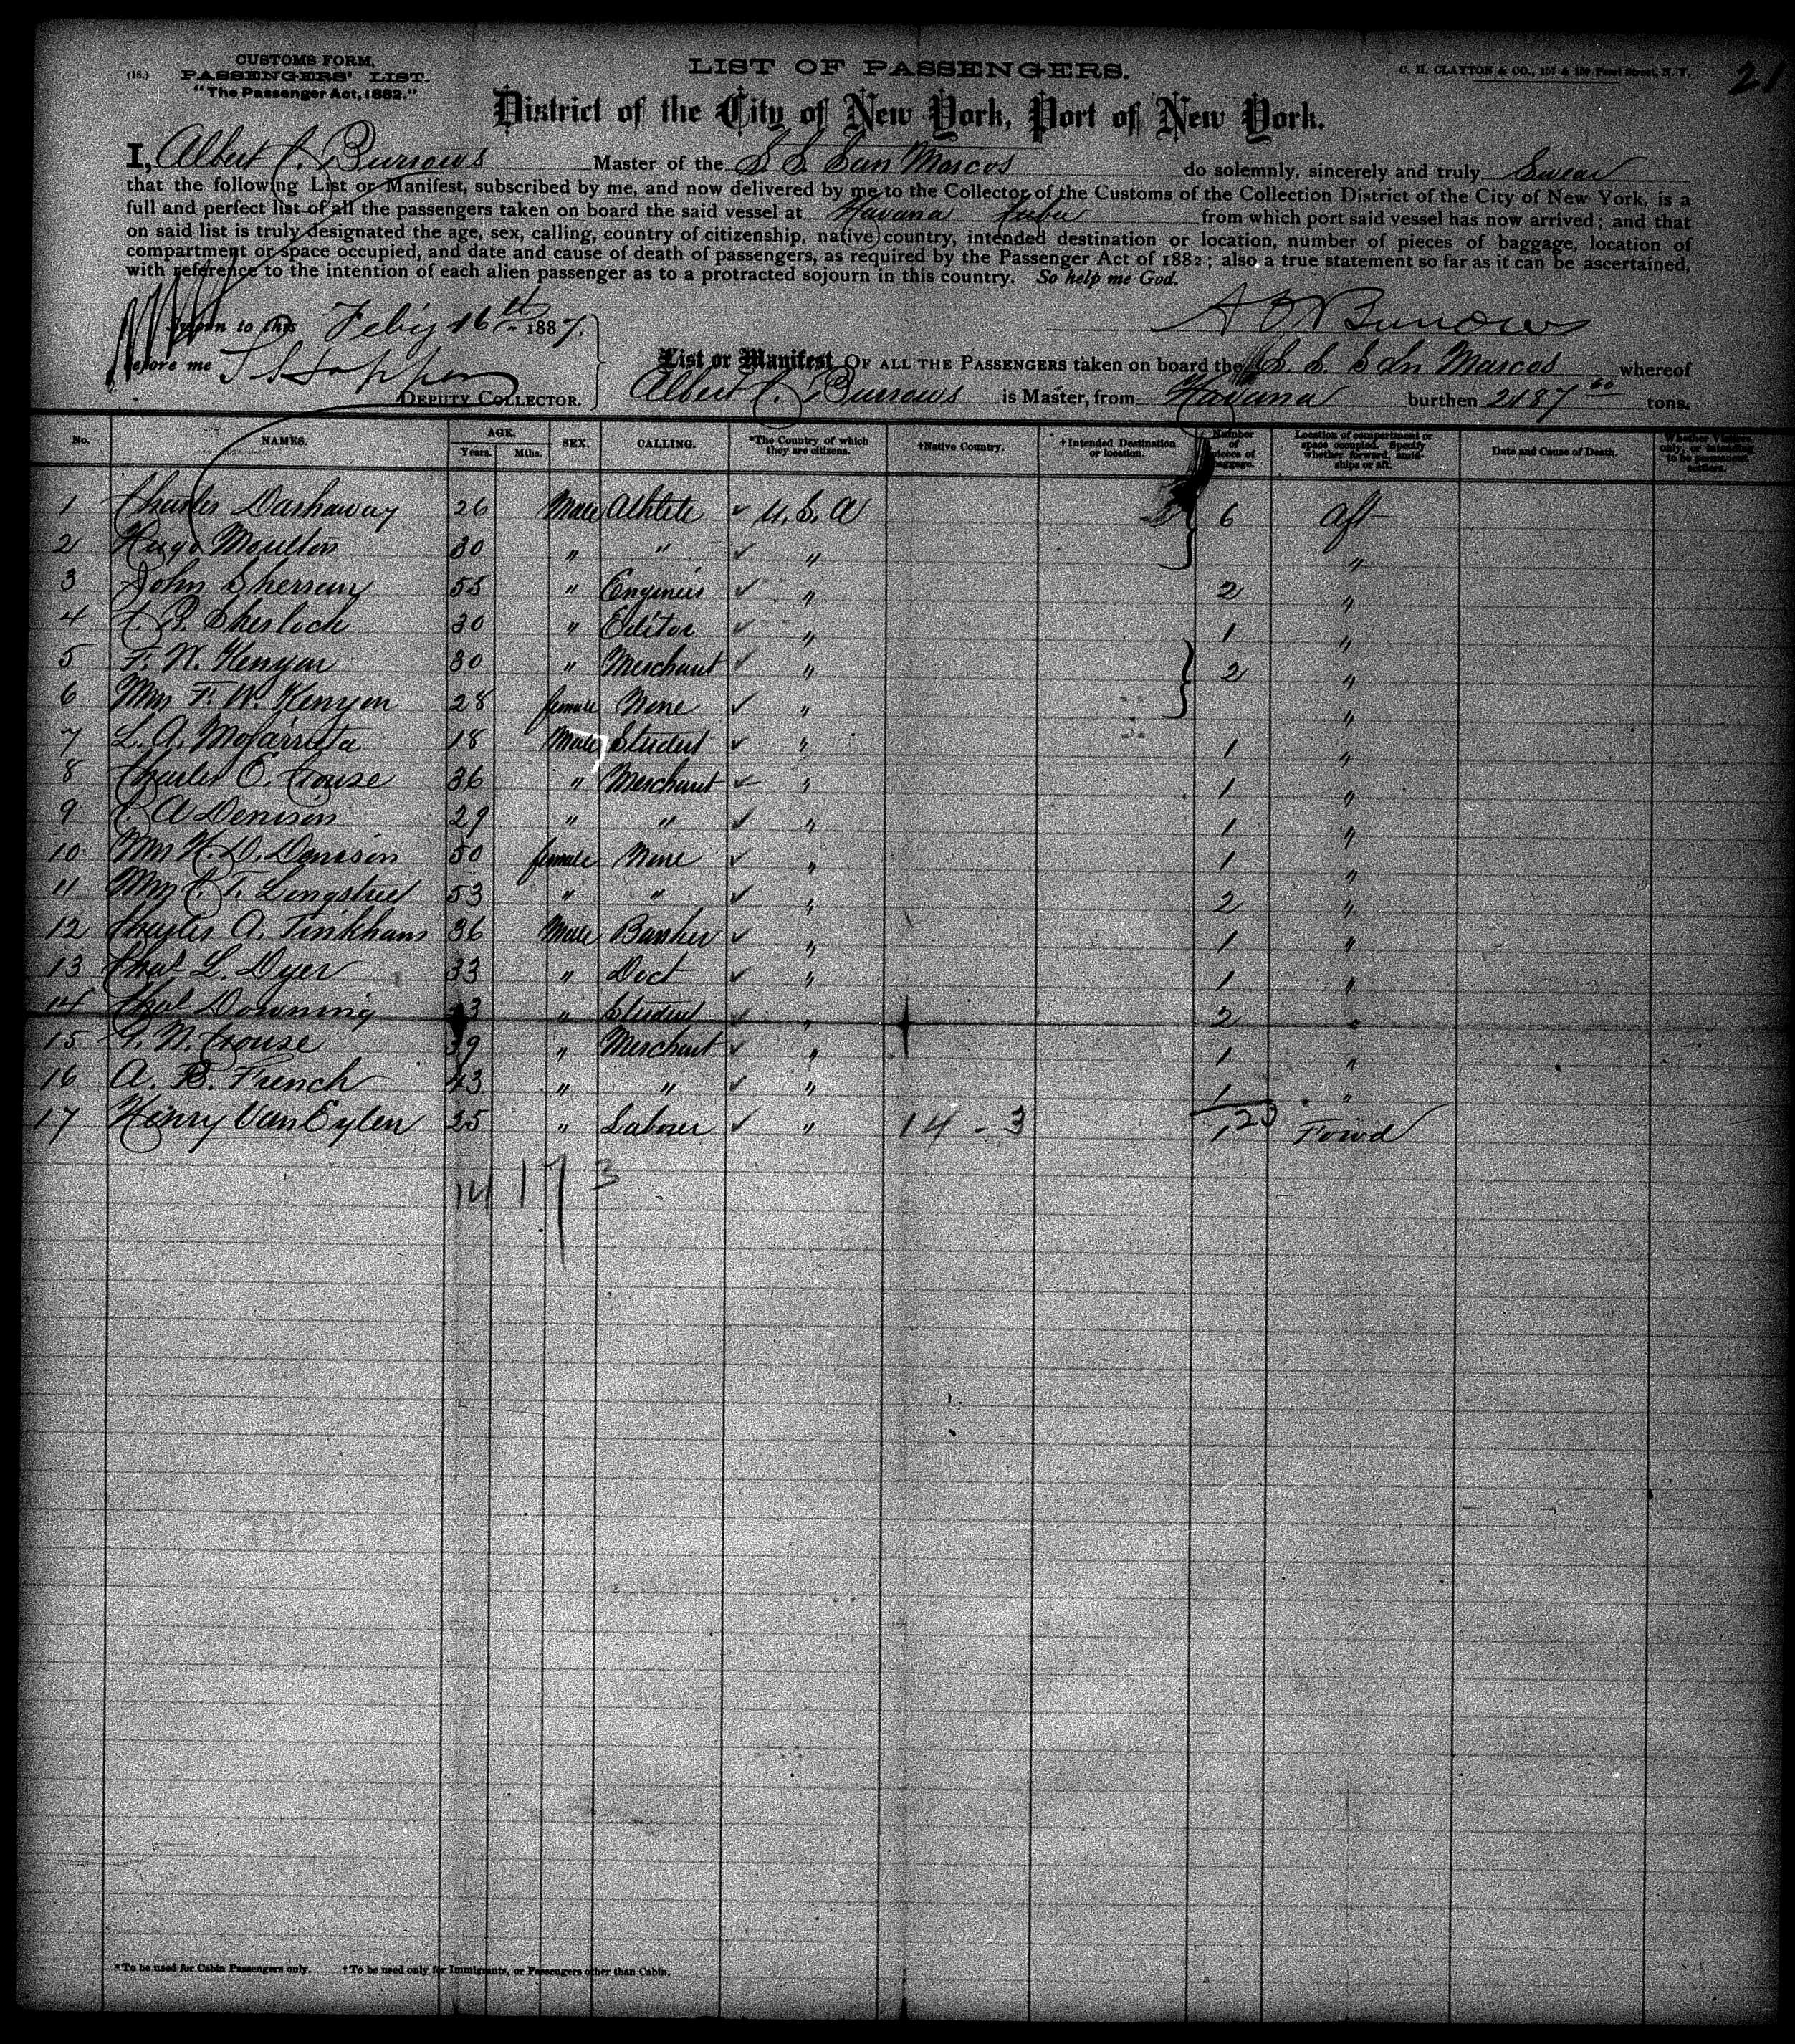 CUSTOMS FORM,
(18.) PASSENGERS' LIST.
"The Passenger Act, 1882."
LIST OF PASSENGERS.
C. H. CLAYTON & CO., 157 & 159 Pearl Street, N. Y.
21
District of the City of New York, Port of New York.
I, Albert C. Burrows Master of the S. S. San Marcos do solemnly, sincerely and truly Swear
that the following List or Manifest, subscribed by me, and now delivered by me to the Collector of the Customs of the Collection District of the City of New York, is a
full and perfect list of all the passengers taken on board the said vessel at Havana Cuba from which port said vessel has now arrived; and that
on said list is truly designated the age, sex, calling, country of citizenship, native country, intended destination or location, number of pieces of baggage, location of
compartment or space occupied, and date and cause of death of passengers, as required by the Passenger Act of 1882; also a true statement so far as it can be ascertained,
with reference to the intention of each alien passenger as to a protracted sojourn in this country. So help me God.
Sworn to this Feb'y 16th 1887. A C Burrows
before me
DEPUTY COLLECTOR.
List or Manifest OF ALL THE PASSENGERS taken on board the S. S. San Marcos whereof
Albert C. Burrows is Master, from Havana burthen 2187 60 tons.
No. NAMES. AGE. Years. Mths. SEX. CALLING. *The Country of which they are citizens. †Native Country. †Intended Destination or location. Number of pieces of baggage. Location of compartment or space occupied. Specify whether forward, amidships or aft. Date and Cause of Death. Whether Visitors only, or intending to be permanent settlers.
1 Charles Dashaway 26 Male Athlete ✓ U. S. A 6 Aft
2 Hugo Moulton 30 " " ✓ " "
3 John Sherren 55 " Engineer ✓ " 2 "
4 C. B. Sherlock 30 " Editor ✓ " 1 "
5 F. W. Kenyon 30 " Merchant ✓ " 2 "
6 Mrs F. W. Kenyon 28 female None ✓ " "
7 L. A. Mojarrieta 18 Male Student ✓ " 1 "
8 Charles E. Crouse 36 " Merchant ✓ " 1 "
9 C. A Denison 29 " " ✓ " 1 "
10 Mrs H. D. Denison 50 female None ✓ " 1 "
11 Mrs C. T. Longstreet 53 " " ✓ " 2 "
12 Charles A. Tinkham 36 Male Banker ✓ " 1 "
13 Chas L. Dyer 33 " Doct ✓ " 1 "
14 Chas Downing " Student ✓ " 2 "
15 N. Crouse 39 " Merchant ✓ " 1 "
16 A. B. French 43 " " ✓ " 1 "
23
17 Henry Van Eylen 25 " Laborer ✓ " 14 - 3 1 Fowd
14 17 3
*To be used for Cabin Passengers only. †To be used only for Immigrants, or Passengers other than Cabin.